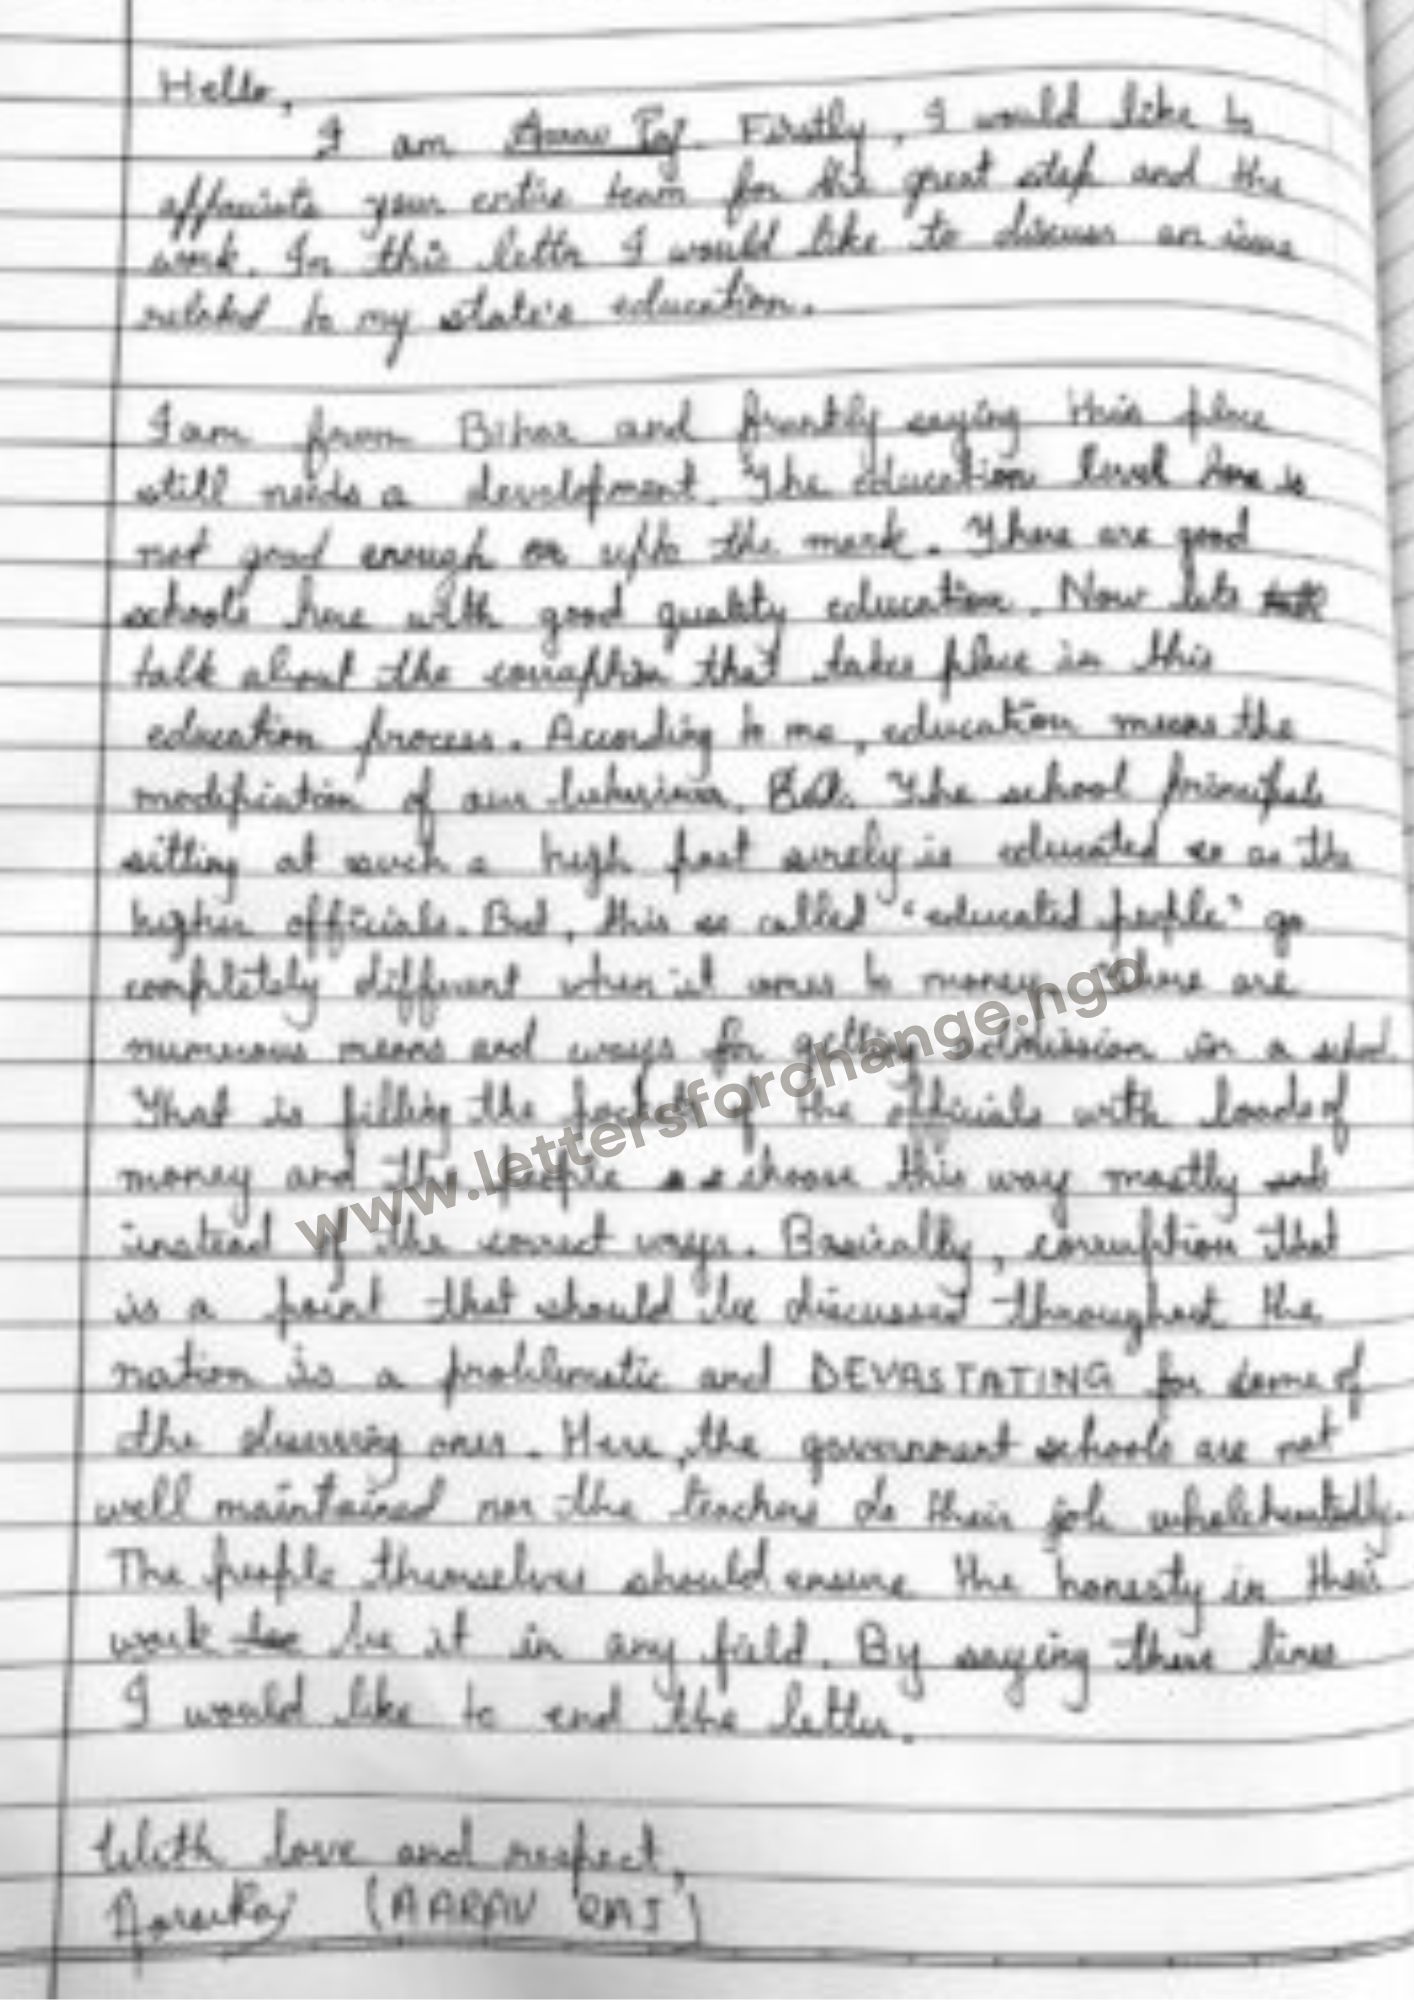 Hello,
I am Aarav Raj. Firstly, I would like to
appreciate your entire team for the great step and the
work. In this letter I would like to discuss an issue
related to my state's education.
I am from Bihar and frankly saying this place
still needs a development. The education level here is
not good enough or upto the mark. There are good
schools here with good quality education. Now lets
talk about the corruption that takes place in this
education process. According to me, education means the
modification of our. The school principals
sitting at such a high post surely is educated so as the
higher officials. But, this so called "educated people" go
completely different when it comes to money. There are
numerous means and ways for getting admission in a school.
That is filling the pockets of the officials with loads of
money and the people choose this way mostly
instead of the correct ways. Basically, corruption that
is a point that should be discussed throughout the
nation is a problematic and DEVASTATING for some of
the deserving ones. Here, the government schools are not
well maintained nor the teachers do their job wholeheartedly.
The people themselves should ensure the honesty in their
work be it in any field. By saying these lines
I would like to end the letter.
With love and respect,
Aarav Raj (AARAV RAJ)
www.lettersforchange.ngo